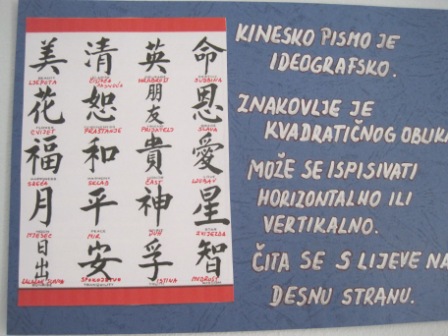 美 清 英 命
LJEPOTA
花 恕 朋友 恩
CVIJET PRAŠTANJE PRIJATELJ SLAVA
福 和 貴 愛
SREĆA SKLAD ČAST LJUBAV
月 平 神 星
MJESEC MIR ZVIJEZDA
日出 安 孚 智
SPOKOJSTVO ISTINA MUDROST
KINESKO PISMO JE
IDEOGRAFSKO.
ZNAKOVLJE JE
KVADRATIČNOG OBLIKA
MOŽE SE ISPISIVATI
HORIZONTALNO ILI
VERTIKALNO.
ČITA SE S LIJEVE NA
DESNU STRANU.